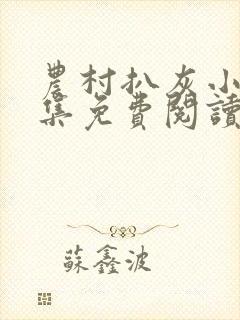 農村扒灰小
集免費閱讀
蘇鑫波